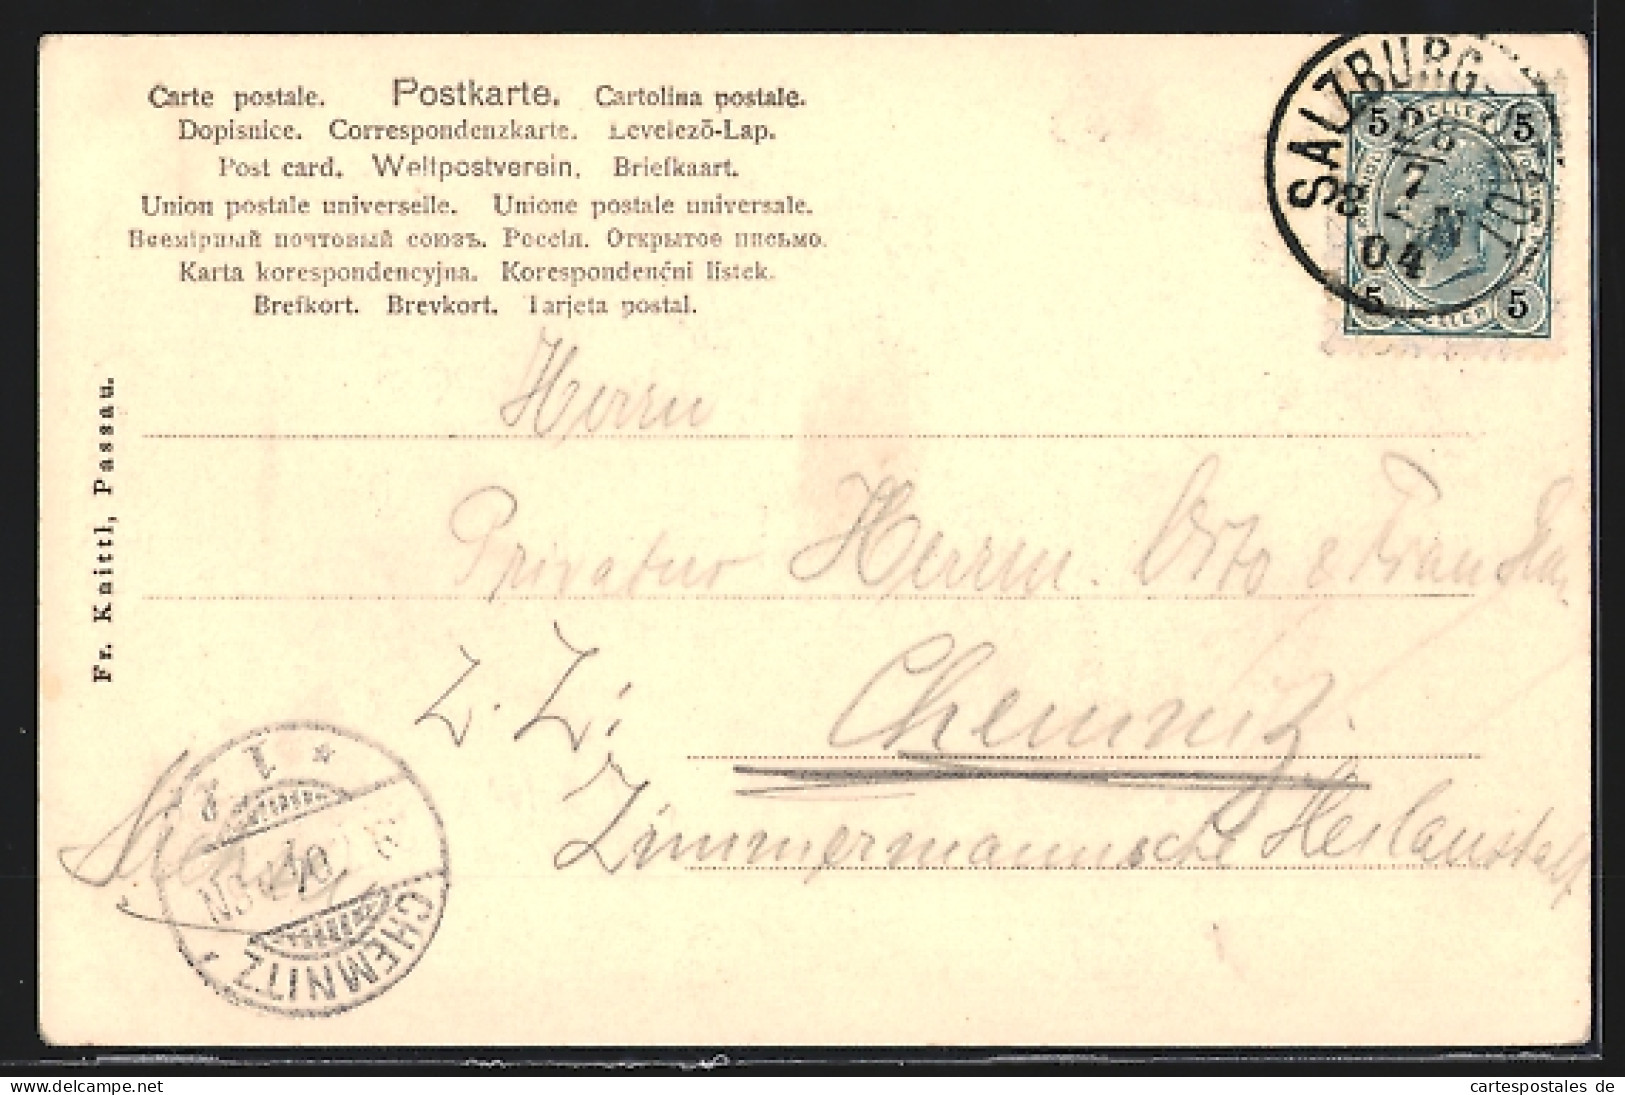 Carte postale. Postkarte. Cartolina postale.
Dopisnice. Correspondenzkarte. Levelezõ-Lap.
Post card. Weltpostverein. Briefkaart.
Union postale universelle. Unione postale universale.
Всемірный почтовый союзъ. Россія. Открытое письмо.
Karta korespondencyjna. Korespondenční lístek.
Brefkort. Brevkort. Tarjeta postal.
SALZBURG
28
7
8
04
5 HELLER 5
5 HELLER 5
Fr. Knittl, Passau.
Herrn
Privatier Herrn Otto & Frau
z. Z. Chemnitz.
Zimmermannsche Heilanstalt
CHEMNITZ
1
cartespostales de